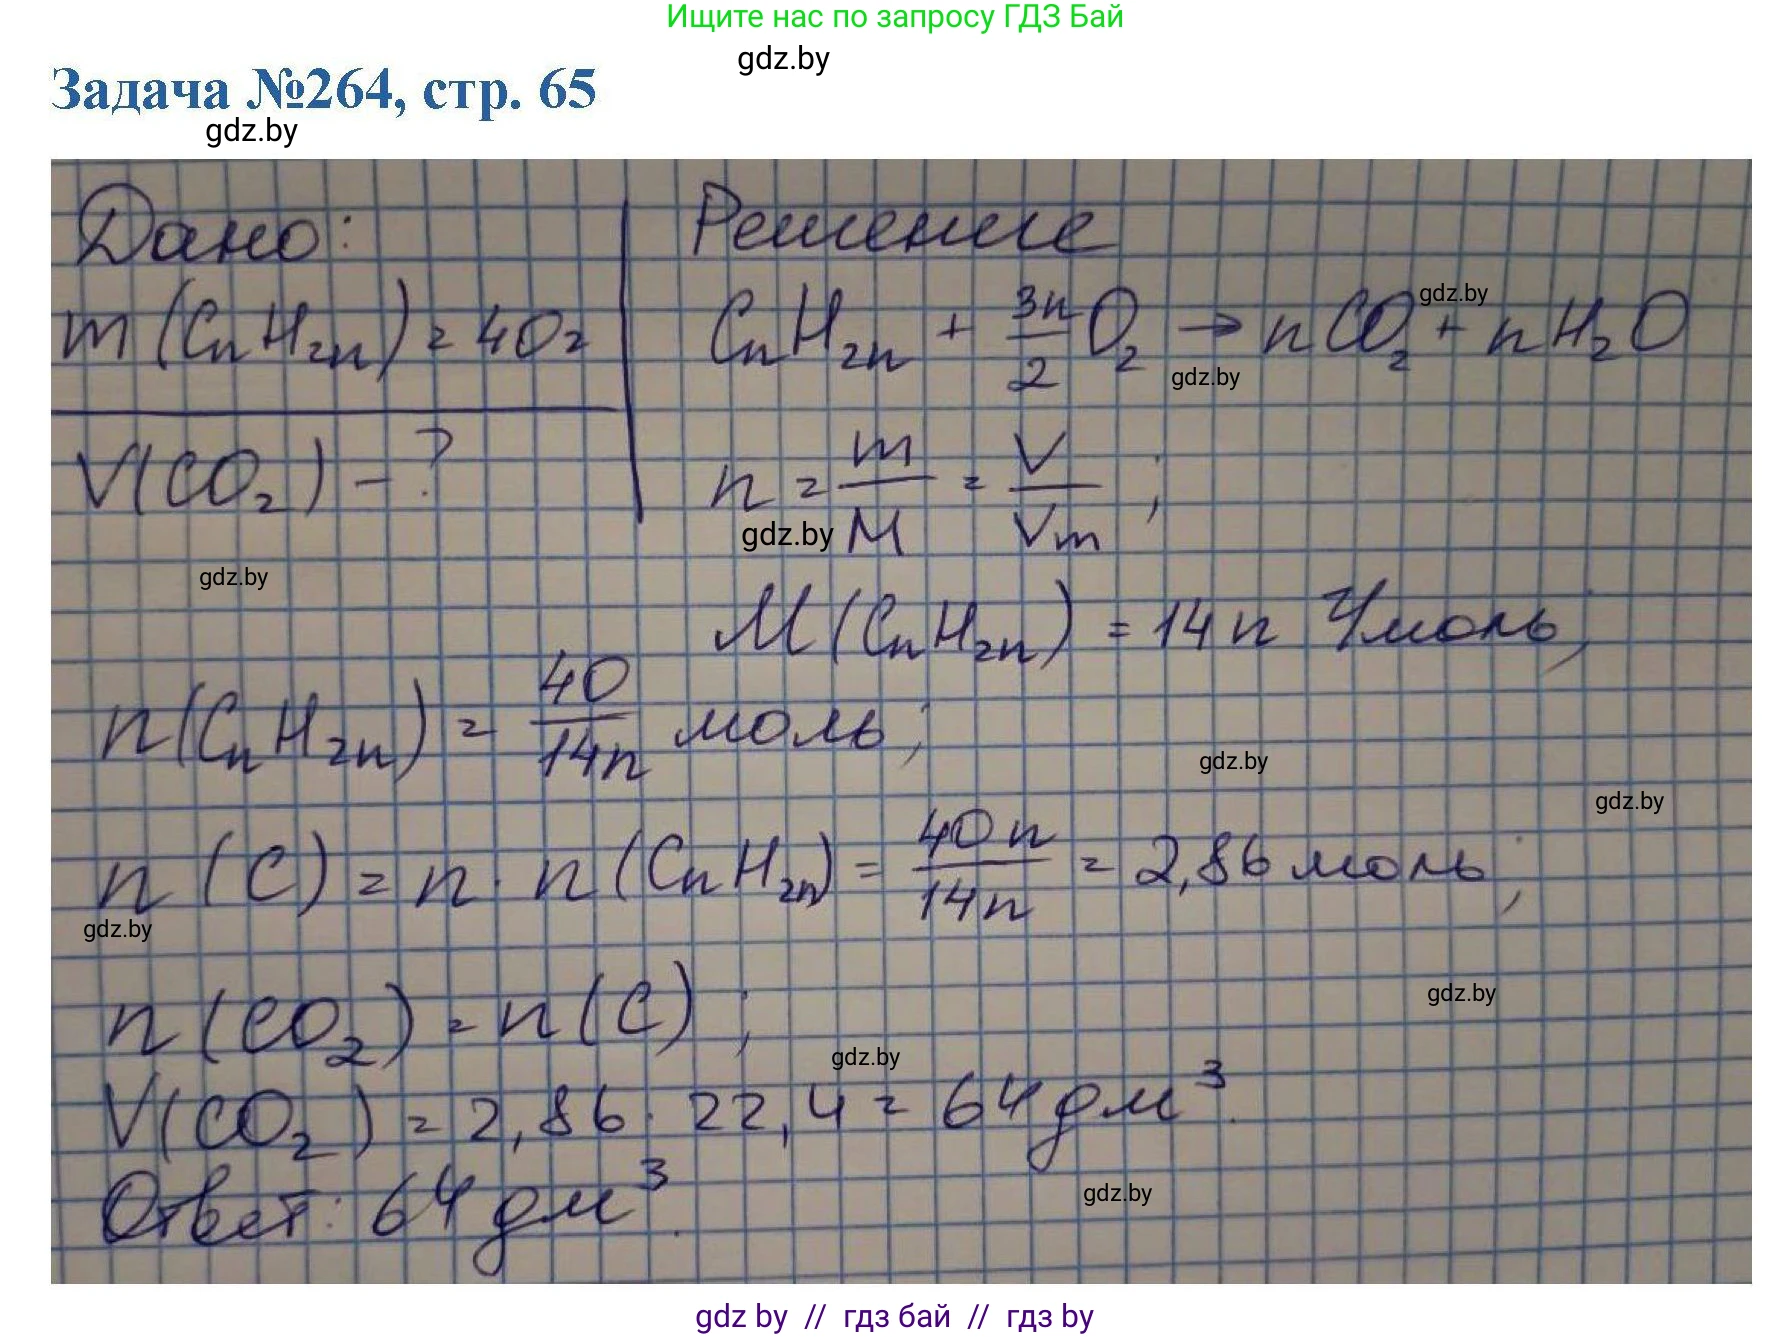 Ищите нас по запросу ГДЗ Бай
gdz.by
Задача №264, стр. 65
gdz.by
Дано:
Решение
m (CnH2n) = 40г
CnH2n + 3n/2 O2 → nCO2 + nH2O
gdz.by
gdz.by
V(CO2) - ?
n = m/M = V/Vm ;
gdz.by
gdz.by
M (CnH2n) = 14n г/моль;
n(CnH2n) = 40/14n моль;
gdz.by
gdz.by
n (C) = n · n (CnH2n) = 40n/14n = 2,86 моль;
gdz.by
n (CO2) = n (C) ;
gdz.by
gdz.by
V(CO2) = 2,86 · 22,4 = 64 дм³.
Ответ: 64 дм³.
gdz.by
gdz by // гдз бай // гдз by